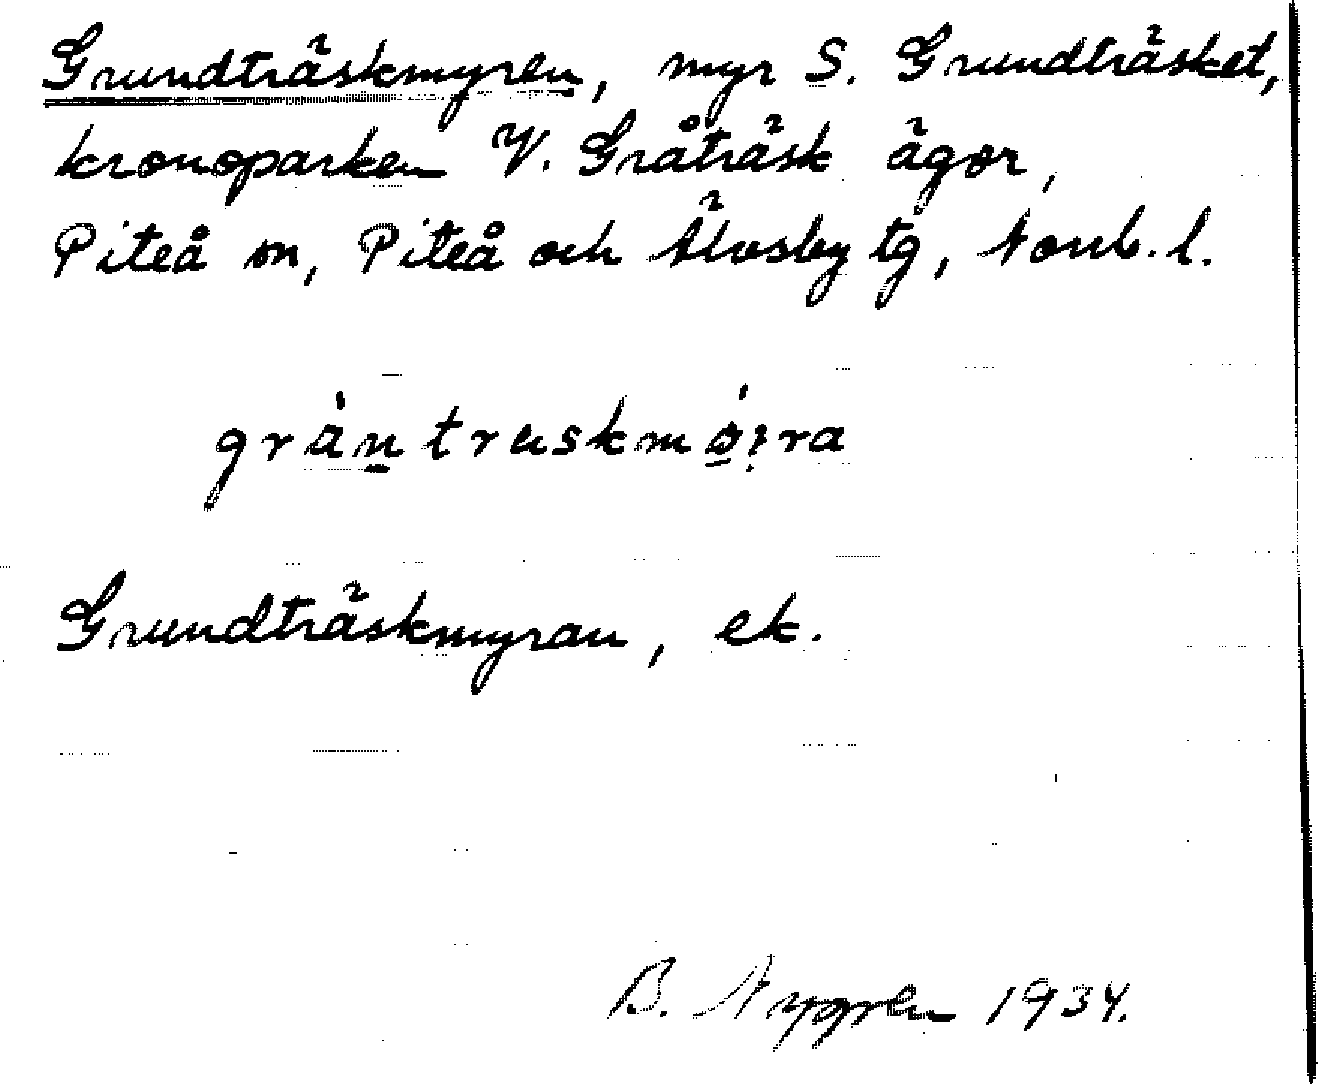 Grundträskmyren, myr S. Grundträsket,
kronoparken V. Gråträsk ägor,
Piteå sn, Piteå och Älvsby tg, Norrb. l.
gràntruskmó:ra
Grundträskmyran, ek.
B. Nygren 1934.